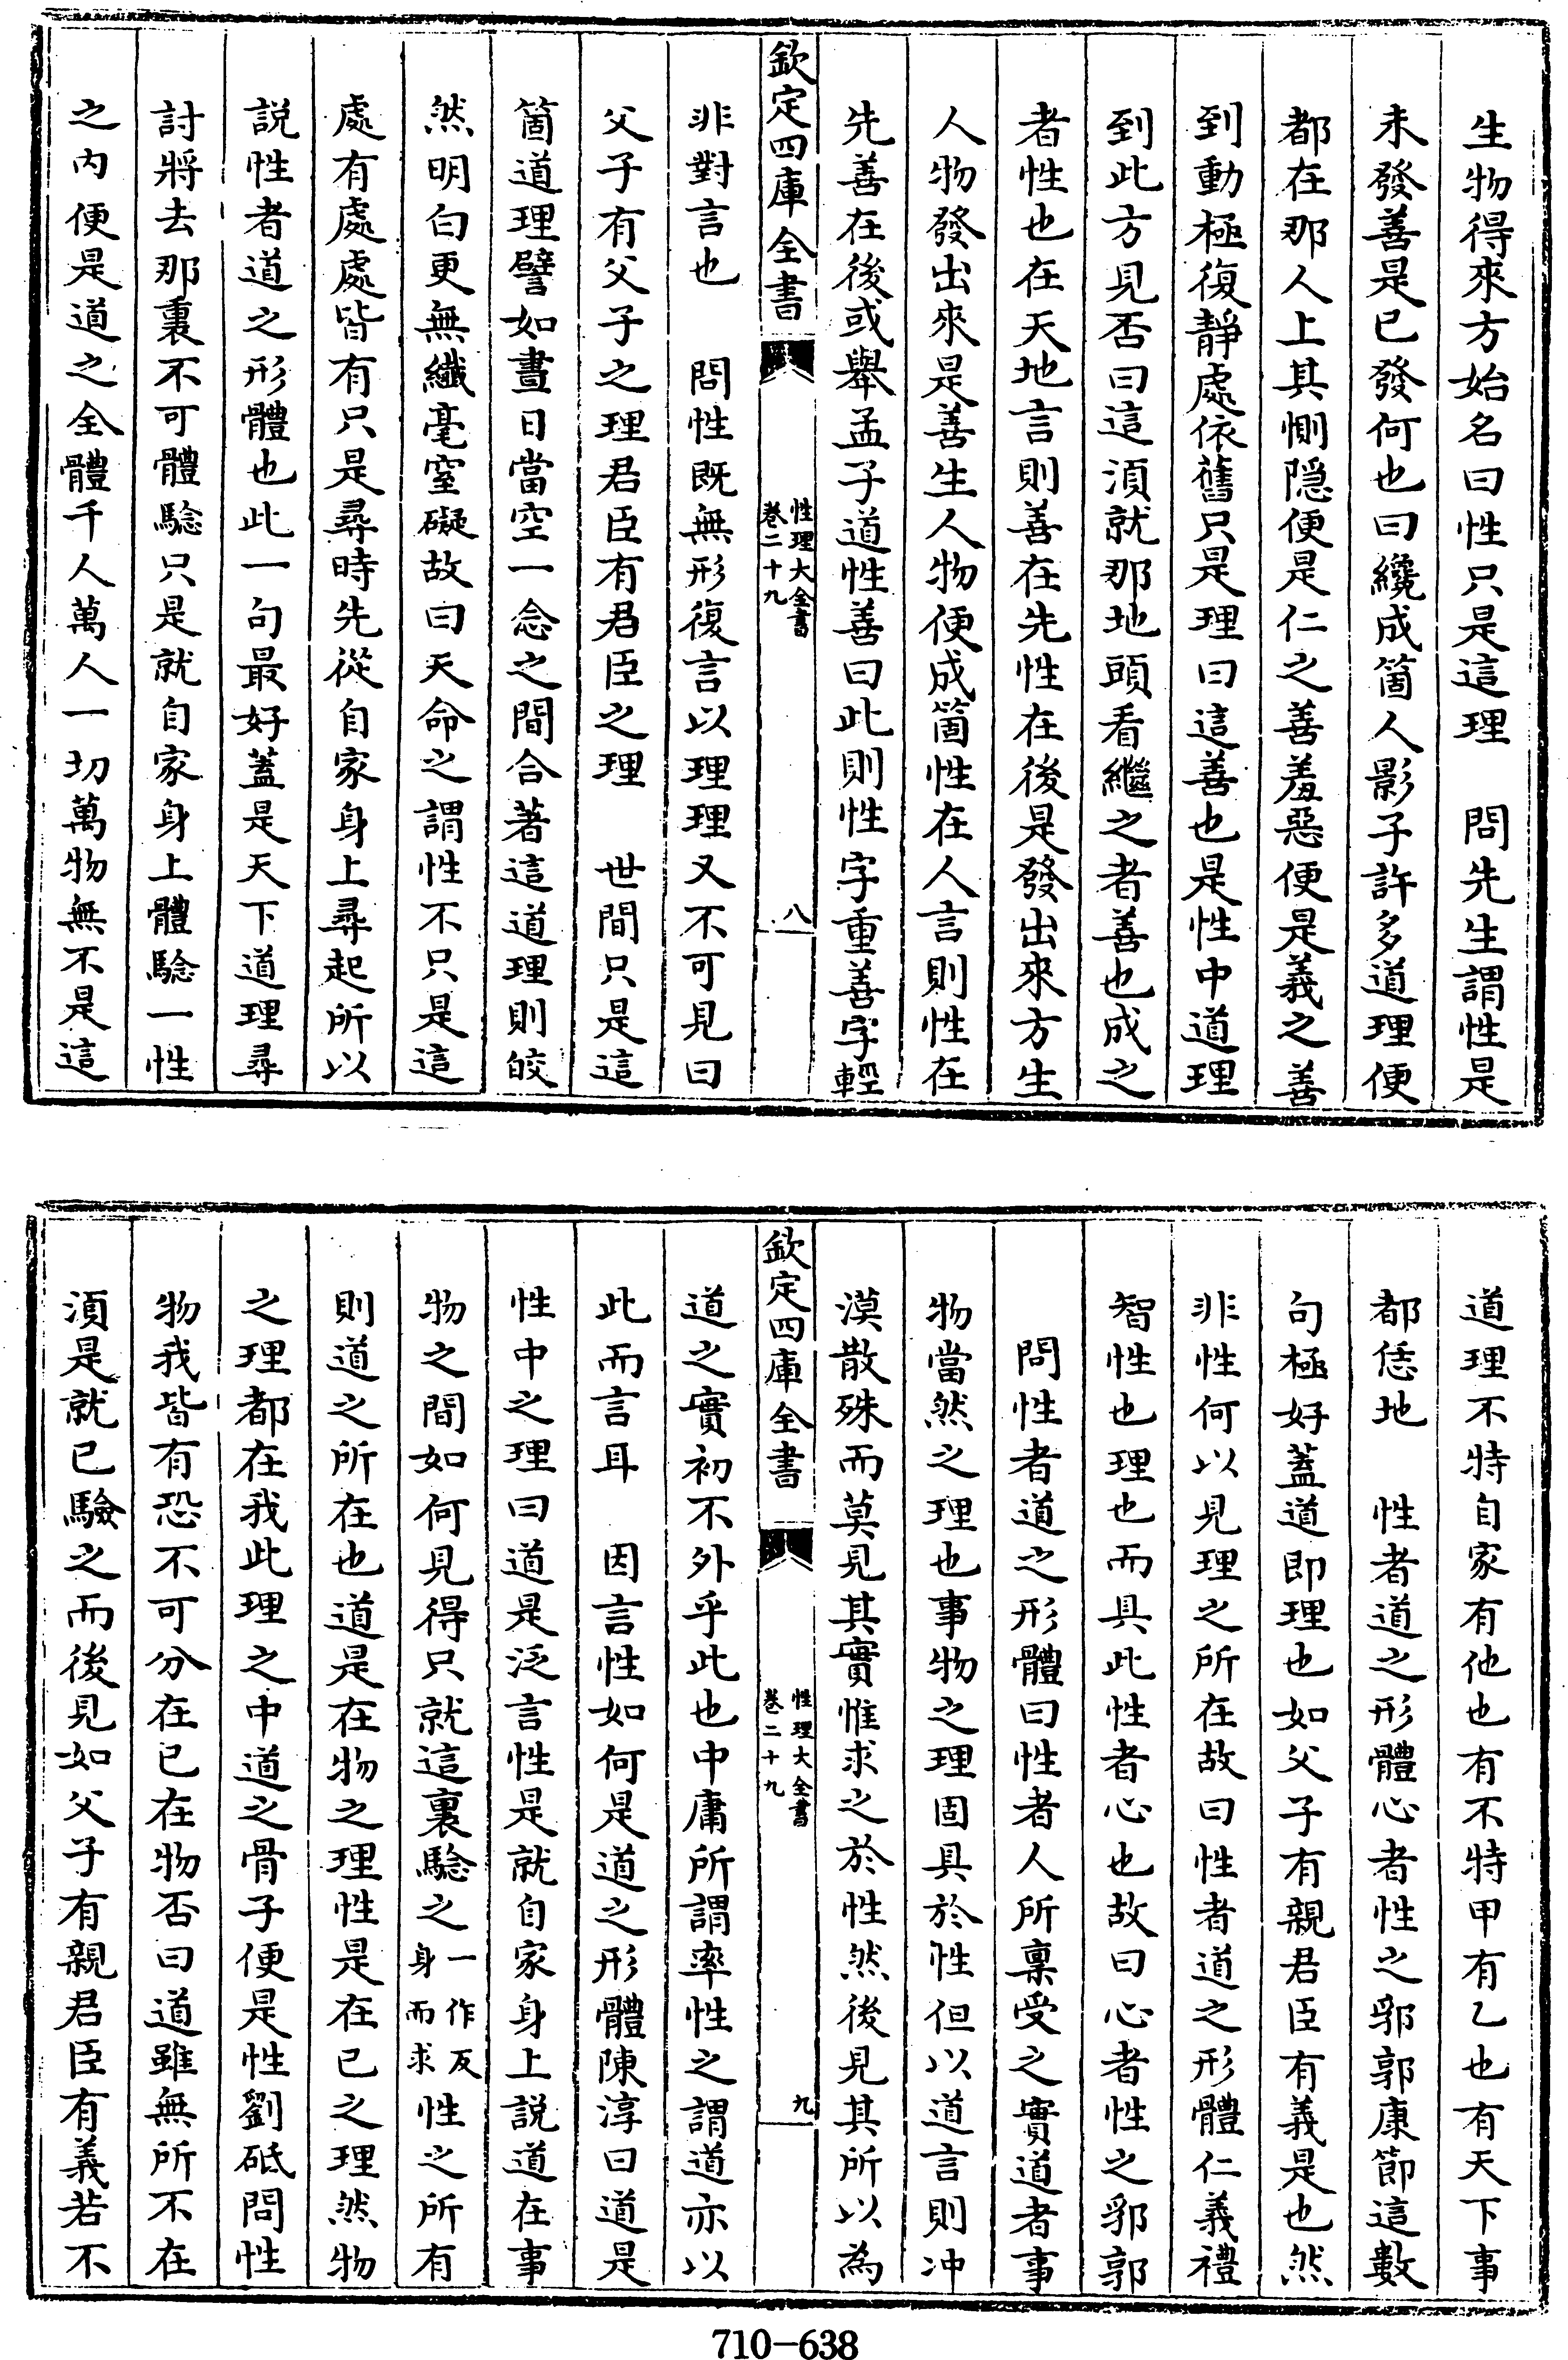 生物得來方始名曰性只是這理　問先生謂性是
未發善是已發何也曰纔成箇人影子許多道理便
都在那人上其惻隠便是仁之善羞惡便是義之善
到動極復靜處依舊只是理曰這善也是性中道理
到此方見否曰這須就那地頭看繼之者善也成之
者性也在天地言則善在先性在後是發出來方生
人物發出來是善生人物便成箇性在人言則性在
先善在後或舉孟子道性善曰此則性字重善字輕
欽定四庫全書
性理大全書
卷二十九
八
非對言也　問性既無形復言以理理又不可見曰
父子有父子之理君臣有君臣之理　世間只是這
箇道理譬如晝日當空一念之間合著這道理則皎
然明白更無纖毫窒礙故曰天命之謂性不只是這
處有處處皆有只是尋時先從自家身上尋起所以
説性者道之形體也此一句最好蓋是天下道理尋
討將去那裏不可體驗只是就自家身上體驗一性
之內便是道之全體千人萬人一切萬物無不是這
道理不特自家有他也有不特甲有乙也有天下事
都恁地　性者道之形體心者性之郛郭康節這數
句極好蓋道即理也如父子有親君臣有義是也然
非性何以見理之所在故曰性者道之形體仁義禮
智性也理也而具此性者心也故曰心者性之郛郭
問性者道之形體曰性者人所稟受之實道者事
物當然之理也事物之理固具於性但以道言則冲
漠散殊而莫見其實惟求之於性然後見其所以為
欽定四庫全書
性理大全書
卷二十九
九
道之實初不外乎此也中庸所謂率性之謂道亦以
此而言耳　因言性如何是道之形體陳淳曰道是
性中之理曰道是泛言性是就自家身上説道在事
物之間如何見得只就這裏驗之一作反身而求性之所有
則道之所在也道是在物之理性是在已之理然物
之理都在我此理之中道之骨子便是性劉砥問性
物我皆有恐不可分在已在物否曰道雖無所不在
須是就已驗之而後見如父子有親君臣有義若不
710-638